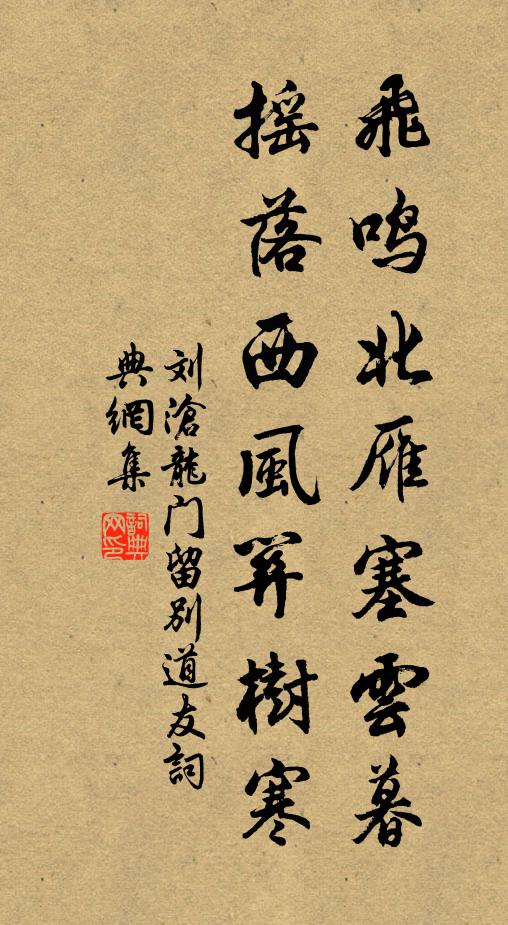 飛鳴北雁塞雲暮
搖落西風關樹寒
刘滄龍门留別道友詞
典網集
詞典
网印